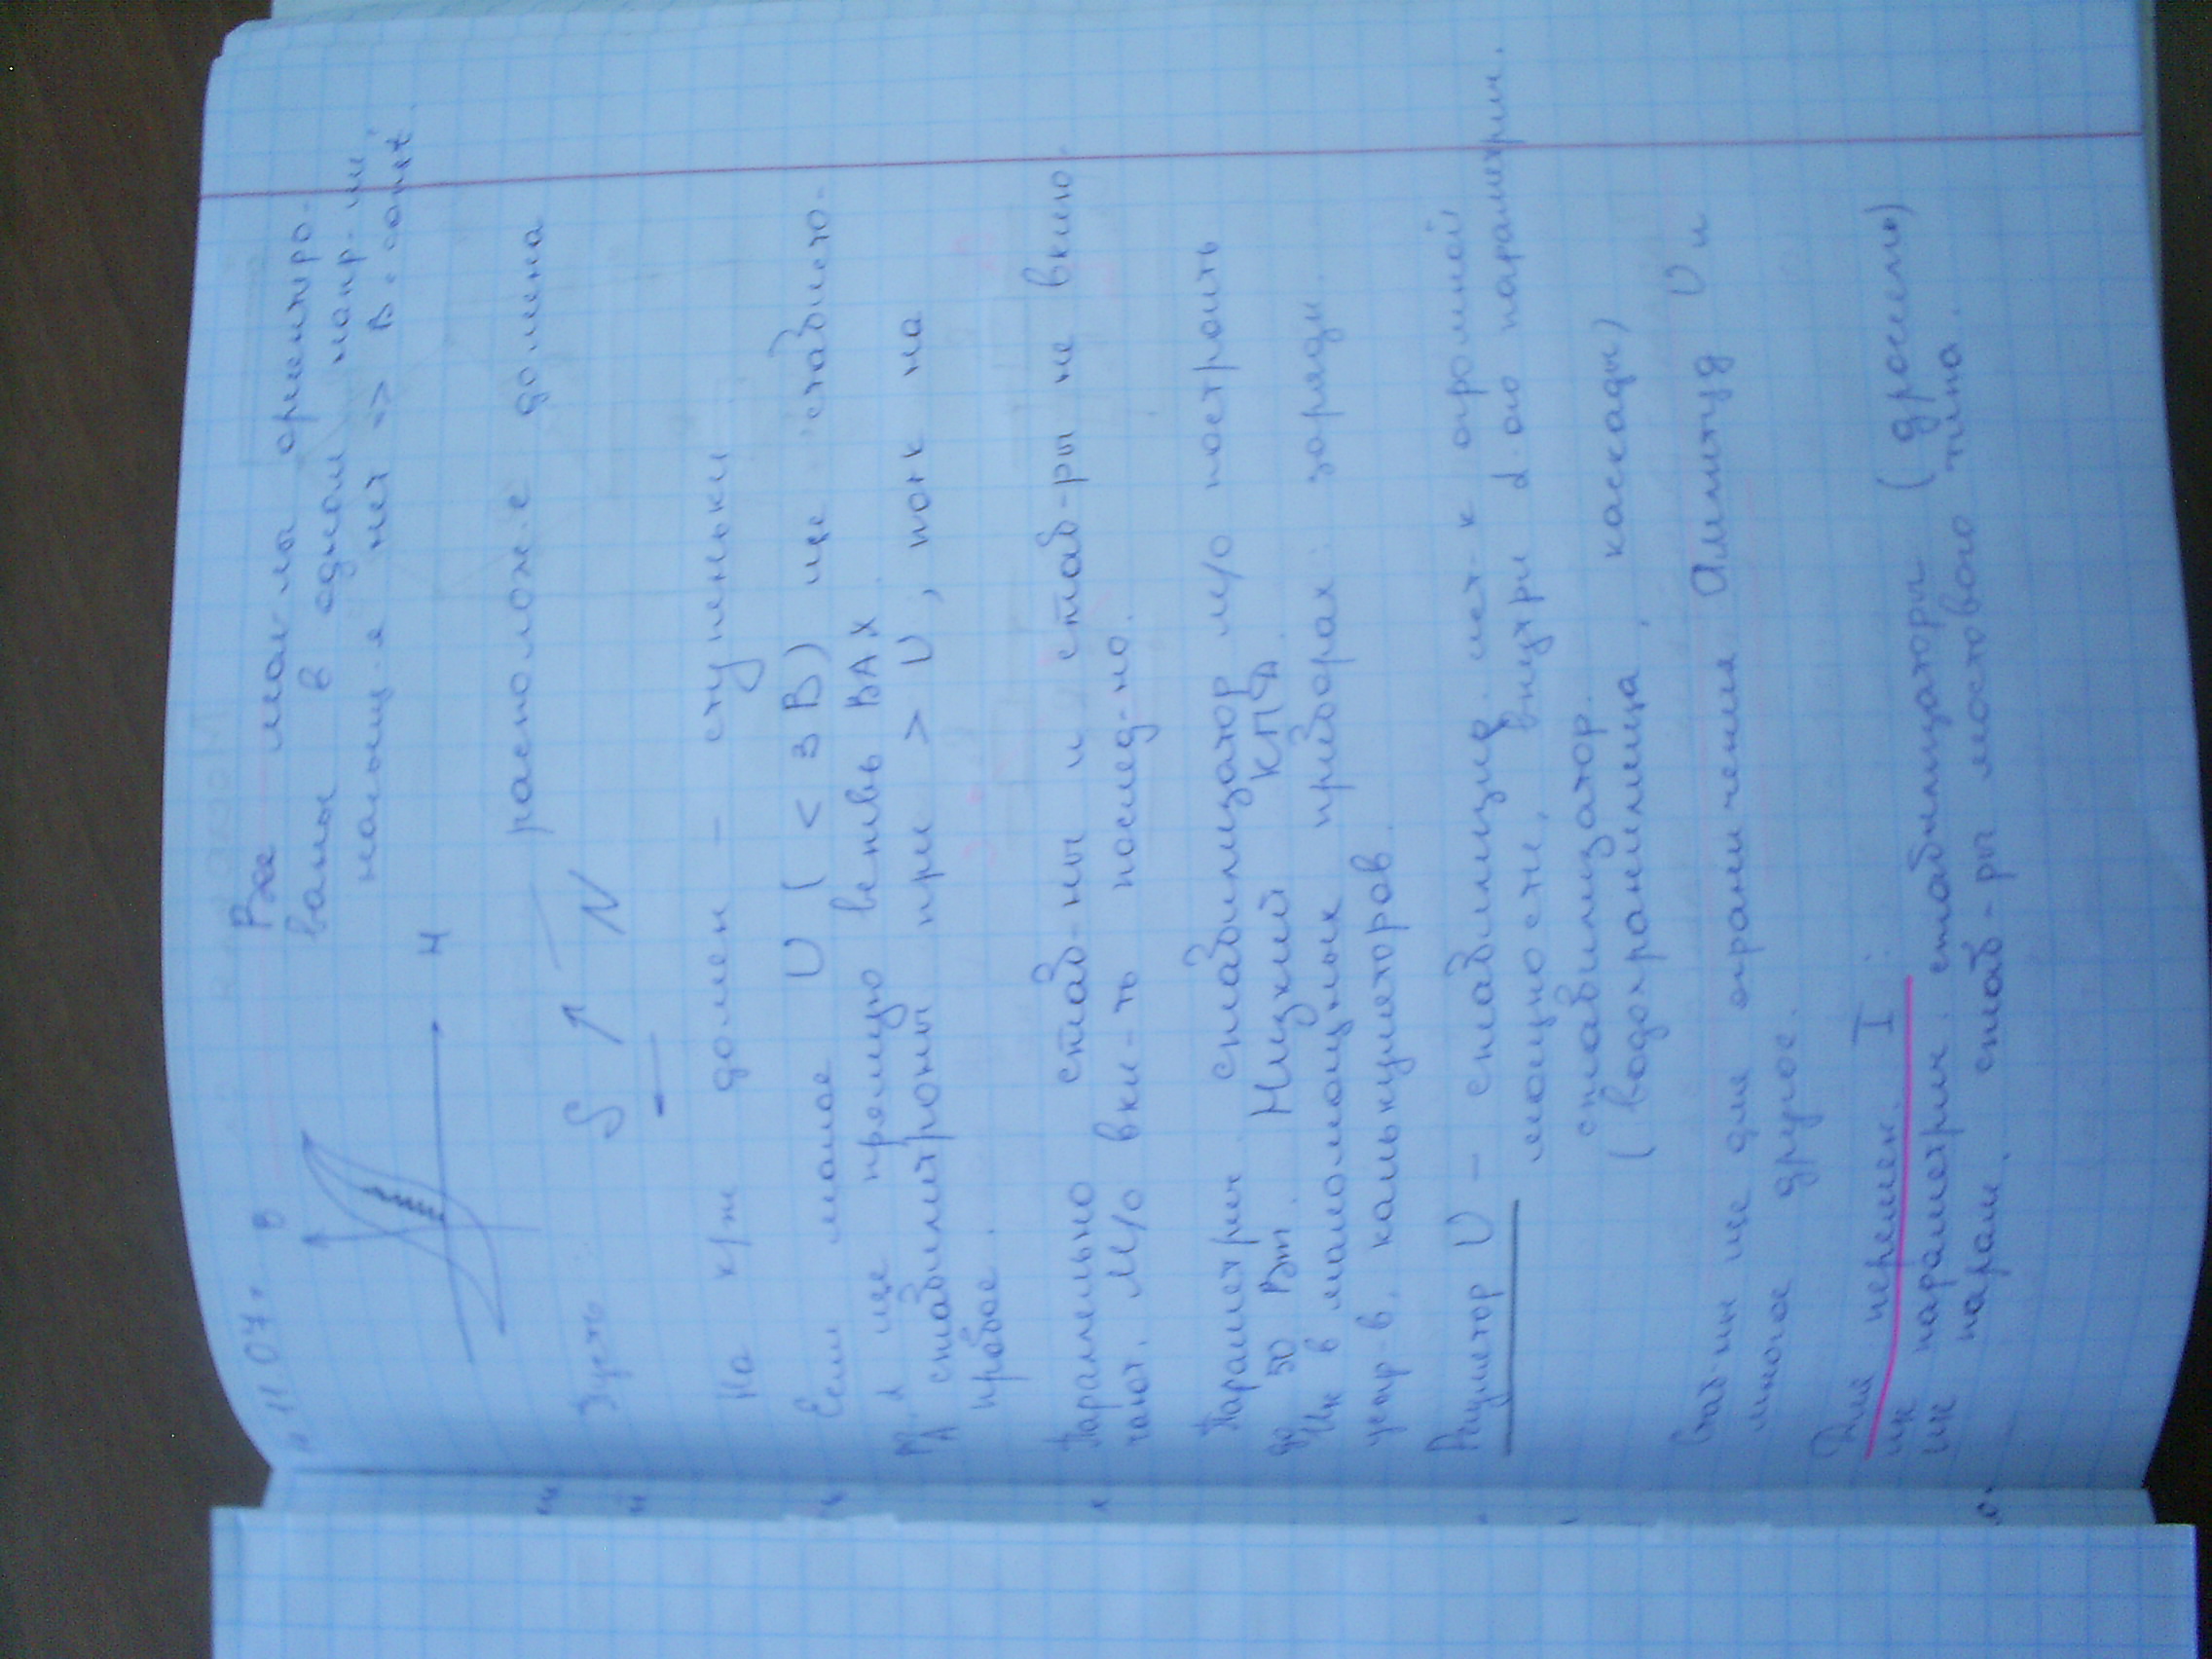 11.07г. В
Все мол-лы ориентиро-
ваны в одном напр-ии,
насыщ-я нет => B = const
H
Пусть расположе домена
S N
На к/ж домен - ступеньки
Если малое U (< 3 В) исп стабисто-
р, исп прямую ветвь ВАХ.
стабилитроны при > U, ток на
пробое.
Параллельно стаб-ны и стаб-ры не вклю-
чают. М/о вкл-ть послед-но.
Параметрич. стабилизатор м/о построить
до 50 Вт. Низкий КПД.
Исп в маломощных приборах: заряди.
устр-в, калькуляторов
Регулятор U - стабилизир. ист-к огромной
мощности, внутри д. его параметрич.
стабилизатор.
(водохранилища, каскады)
Стаб-ны исп для ограничения амплитуд U и
многое другое.
Для перемен. I:
исп параметрич. стабилизаторы (дроссели)
исп парам. стаб-ры мостового типа.